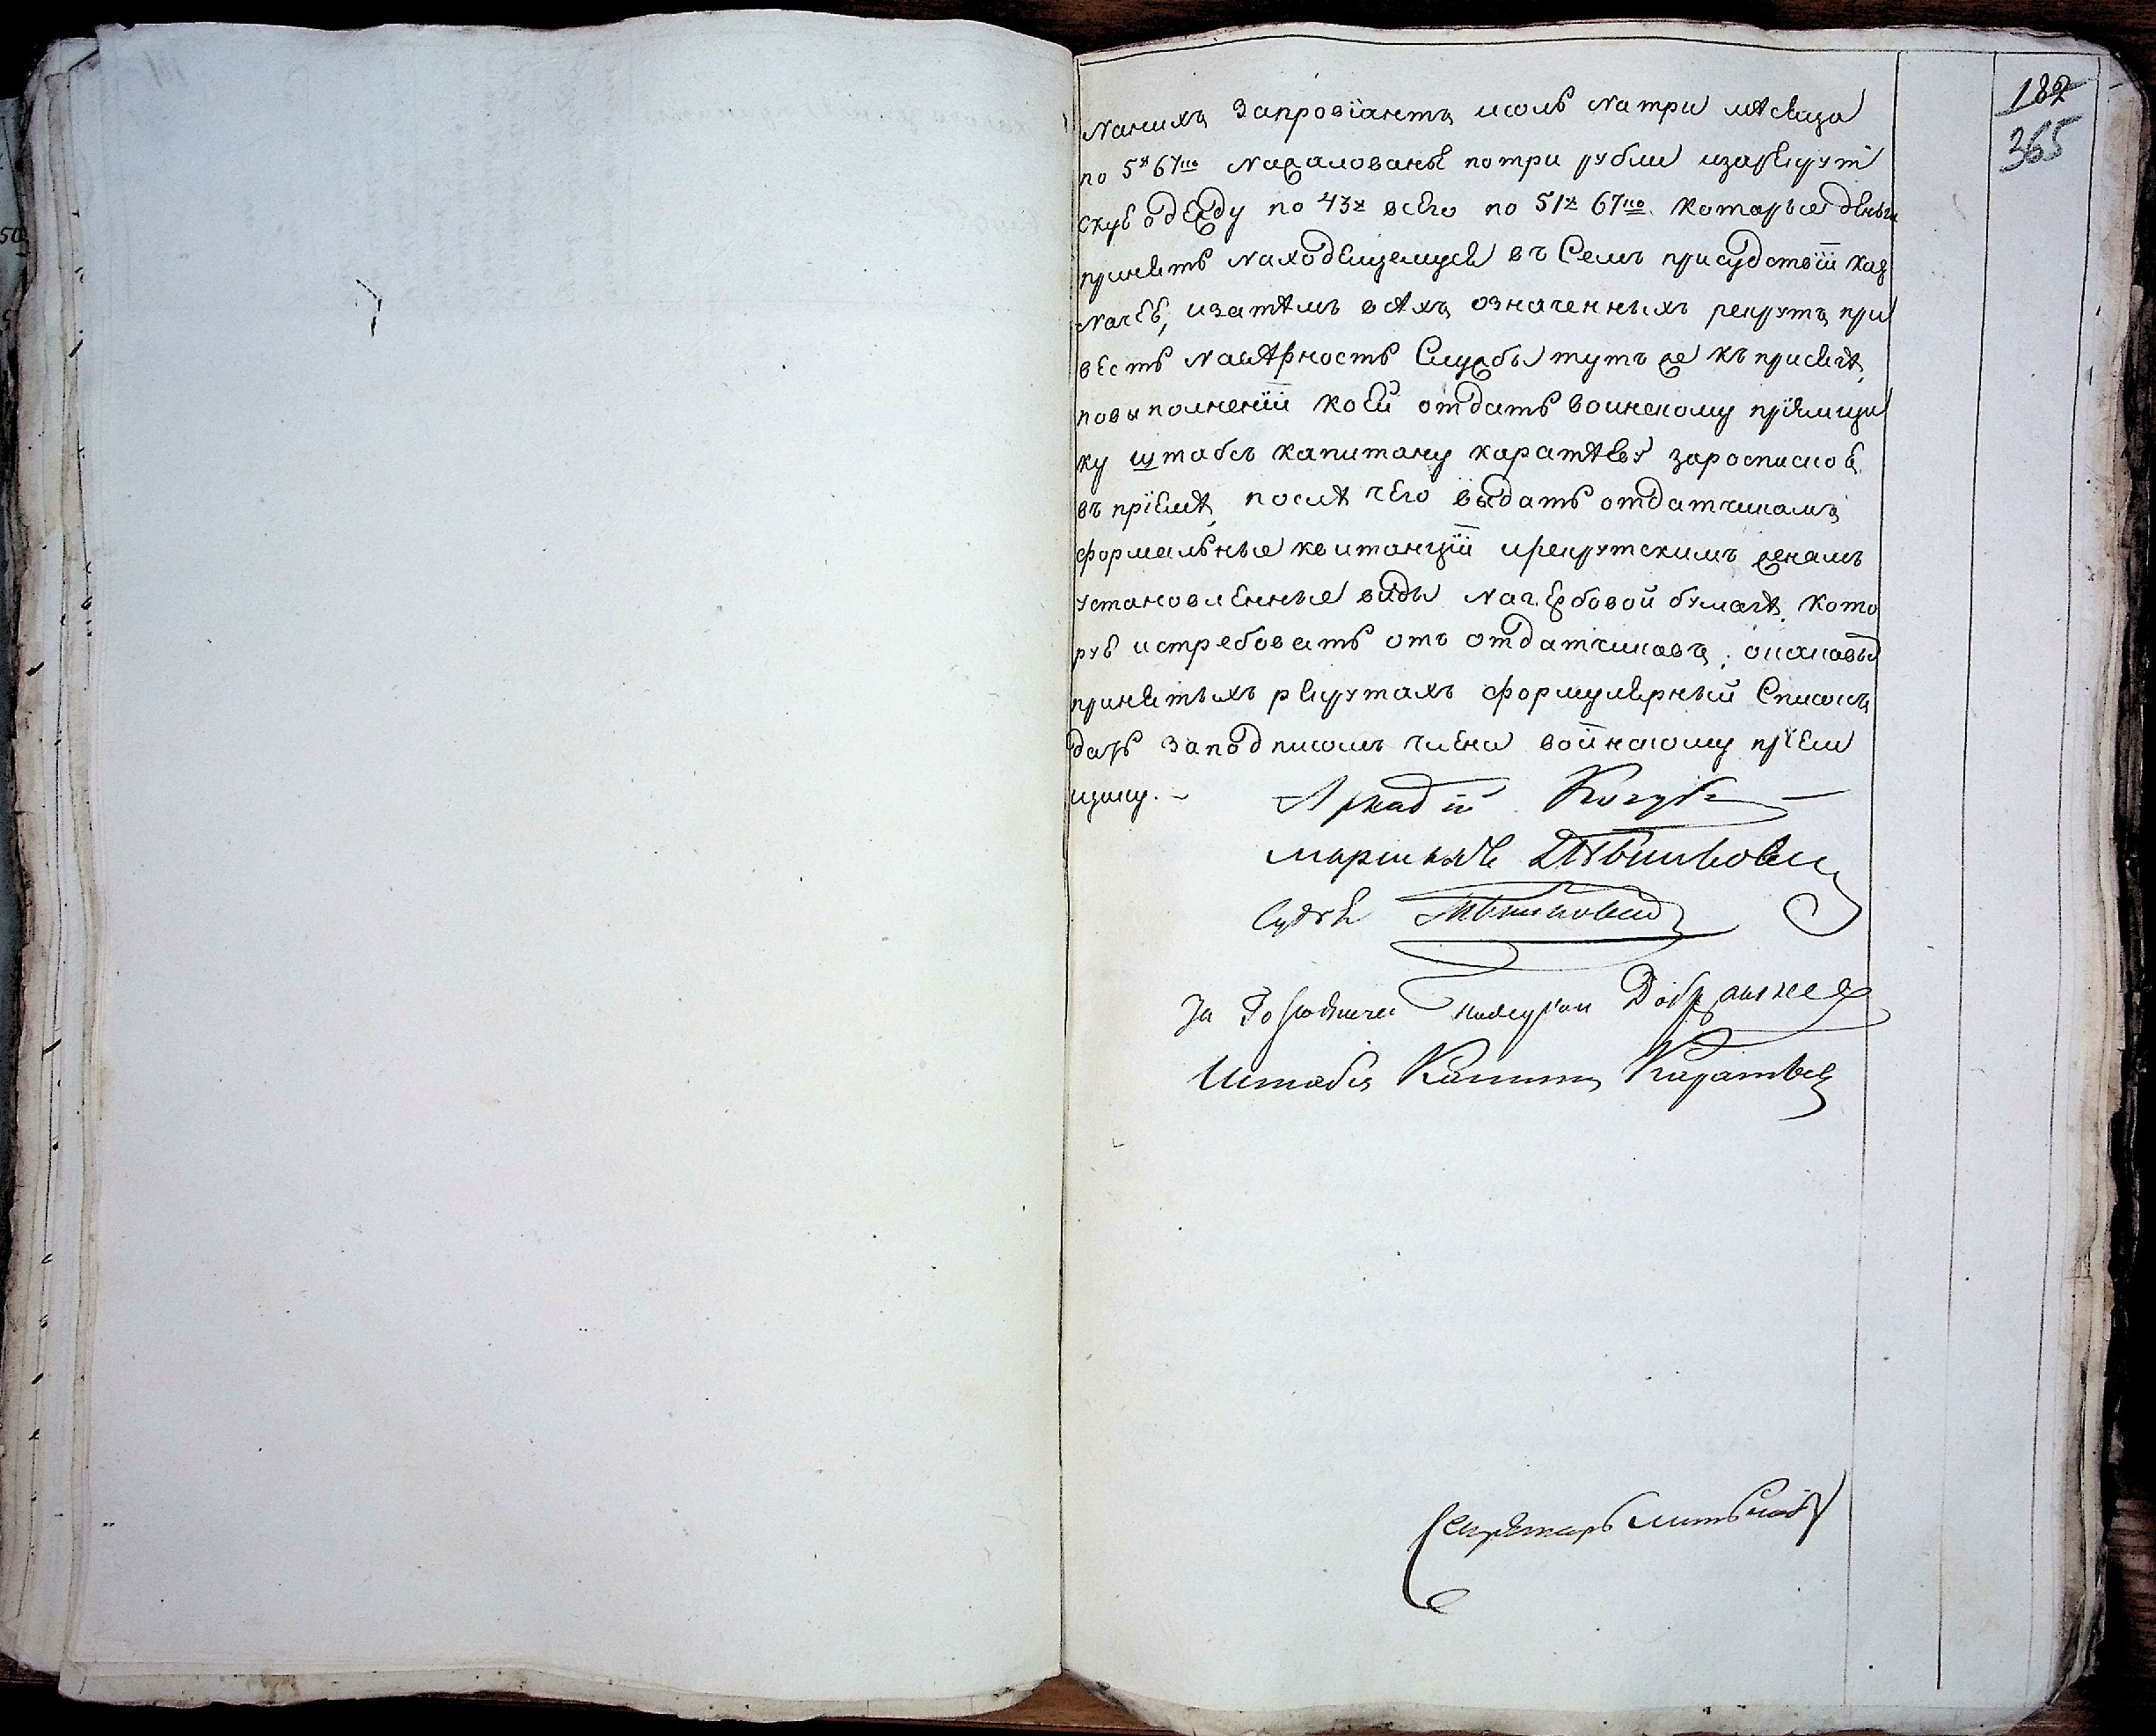 182
365
на нихъ за провіантъ и соль на три мѣсяца
по 5р 67ко на жалованье по три рубли и за рекрут
скую одежду по 43р всего по 51р 67ко которые деньги
принять находящемуся въ семъ присудствіи каз
начею, и затѣмъ всѣхъ означенныхъ рекрутъ при
весть на вѣрность службы тутъ же къ присягѣ,
по выполненіи коей отдать воинскому пріемщи
ку штабсъ капитану Каратѣеву за роспискою
въ пріемѣ, послѣ чего выдать отдатчикамъ
формальные квитанціи и рекрутскимъ женамъ
установленные виды на гербовой бумагѣ, кото
рую истребовать отъ отдатчиковъ; о каковы
принятыхъ рекрутахъ формулярный списокъ
дать за подписомъ члена воинскому пріем
щику. –
Аркадій
маршалъ
Судья
За Городничаго
Штабсъ Капитанъ Каратѣевъ
Секретарь